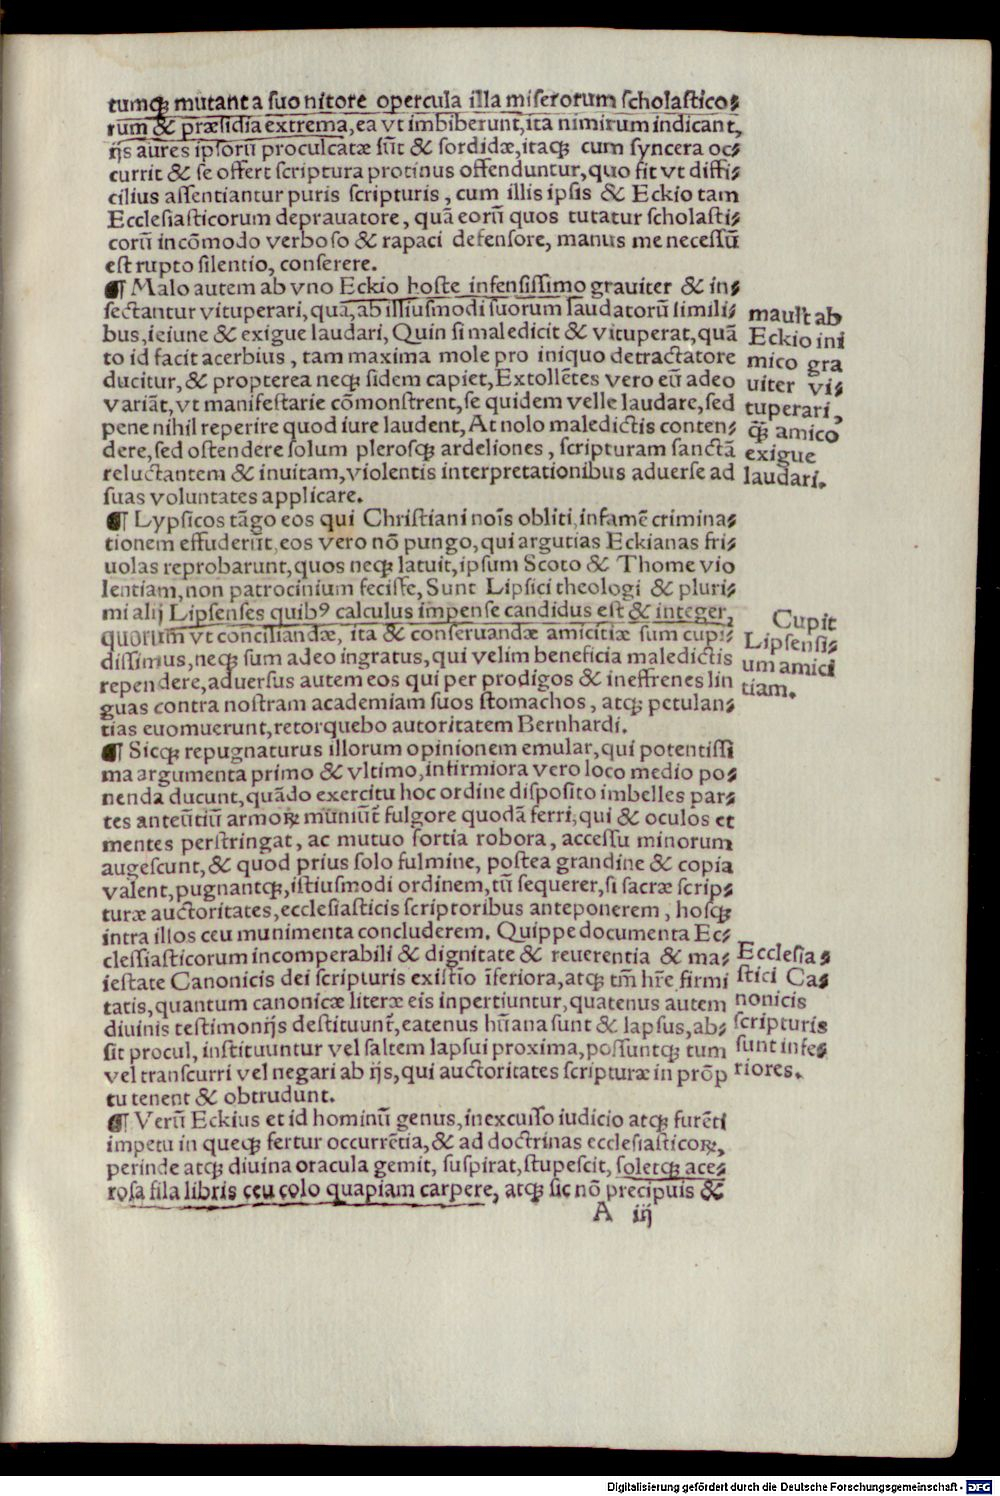 tumqꝫ mutant a suo nitore opercula illa miserorum scholastico⸗
rum & præsidia extrema, ea vt imbiberunt, ita nimirum indicant,
ijs aures ipsorū proculcatæ sūt & sordidæ, itaqꝫ cum syncera oc⸗
currit & se offert scriptura protinus offenduntur, quo fit vt diffi⸗
cilius assentiantur puris scripturis, cum illis ipsis & Eckio tam
Ecclesiasticorum deprauatore, quā eorū quos tutatur scholasti⸗
corū incōmodo verboso & rapaci defensore, manus me necessū
est rupto silentio, conserere.
¶ Malo autem ab vno Eckio hoste infensissimo grauiter & in⸗
sectantur vituperari, quā, ab illiusmodi suorum laudatorū simili⸗
bus, ieiune & exigue laudari, Quin si maledicit & vituperat, quā
to id facit acerbius, tam maxima mole pro iniquo detractatore
ducitur, & propterea neqꝫ fidem capiet, Extollētes vero eū adeo
variāt, vt manifestarie cōmonstrent, se quidem velle laudare, sed
pene nihil reperire quod iure laudent, At nolo maledictis conten⸗
dere, sed ostendere solum plerosqꝫ ardeliones, scripturam sanctā
reluctantem & inuitam, violentis interpretationibus aduerse ad
suas voluntates applicare.
mault ab
Eckio ini
mico gra
uiter vi⸗
tuperari,
q̄ꝫ amico
exigue
laudari.
¶ Lypsicos tāgo eos qui Christiani nois obliti, infamē crimina⸗
tionem effuderūt, eos vero nō pungo, qui argutias Eckianas fri⸗
uolas reprobarunt, quos neqꝫ latuit, ipsum Scoto & Thome vio
lentiam, non patrocinium fecisse, Sunt Lipsici theologi & pluri⸗
mi alij Lipsenses quibꝰ calculus impense candidus est & integer,
quorum vt conciliandæ, ita & conseruandæ amicitiæ sum cupi⸗
dissimus, neqꝫ sum adeo ingratus, qui velim beneficia maledictis
rependere, aduersus autem eos qui per prodigos & ineffrenes lin
guas contra nostram academiam suos stomachos, atqꝫ petulan⸗
tias euomuerunt, retorquebo autoritatem Bernhardi.
Cupit
Lipsensi⸗
um amici
tiam.
¶ Sicqꝫ repugnaturus illorum opinionem emular, qui potentissi
ma argumenta primo & vltimo, infirmiora vero loco medio po⸗
nenda ducunt, quādo exercitu hoc ordine disposito imbelles par⸗
tes anteūtiū armoꝝ muniūt̄ fulgore quodā ferri, qui & oculos et
mentes perstringat, ac mutuo fortia robora, accessu minorum
augescunt, & quod prius solo fulmine, postea grandine & copia
valent, pugnantqꝫ, istiusmodi ordinem, tū sequerer, si sacræ scrip⸗
turæ auctoritates, ecclesiasticis scriptoribus anteponerem, hosqꝫ
intra illos ceu munimenta concluderem. Quippe documenta Ec⸗
clessiasticorum incomperabili & dignitate & reuerentia & ma⸗
iestate Canonicis dei scripturis existīo īferiora, atqꝫ tm̄ hr̄e firmi
tatis, quantum canonicæ literæ eis inpertiuntur, quatenus autem
diuinis testimonijs destituunt̄, eatenus hūana sunt & lapsus, ab⸗
sit procul, instituuntur vel saltem lapsui proxima, possuntqꝫ tum
vel transcurri vel negari ab ijs, qui auctoritates scripturæ in prōp
tu tenent & obtrudunt.
Ecclesia⸗
stici Ca⸗
nonicis
scripturis
sunt infe⸗
riores.
¶ Verū Eckius et id hominū genus, inexcusso iudicio atqꝫ furēti
impetu in queqꝫ fertur occurrētia, & ad doctrinas ecclesiasticoꝝ,
perinde atqꝫ diuina oracula gemit, suspirat, stupescit, soletqꝫ ace⸗
rosa fila libris ceu colo quapiam carpere, atqꝫ sic nō precipuis &
A iij
Digitalisierung gefördert durch die Deutsche Forschungsgemeinschaft - DFG